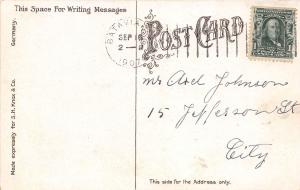 This Space For Writing Messages
Germany.
Made expressly for S. H. Knox & Co.
BATAVIA
SEP 18
2 -
1907
POST CARD
1
Mr Axel Johnson
15 Jefferson St
City
This side for the Address only.